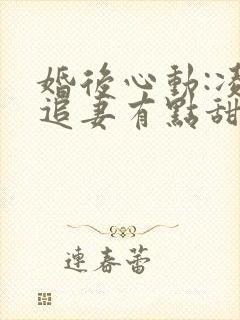 婚後心動:凌
追妻有點甜
連春蕾